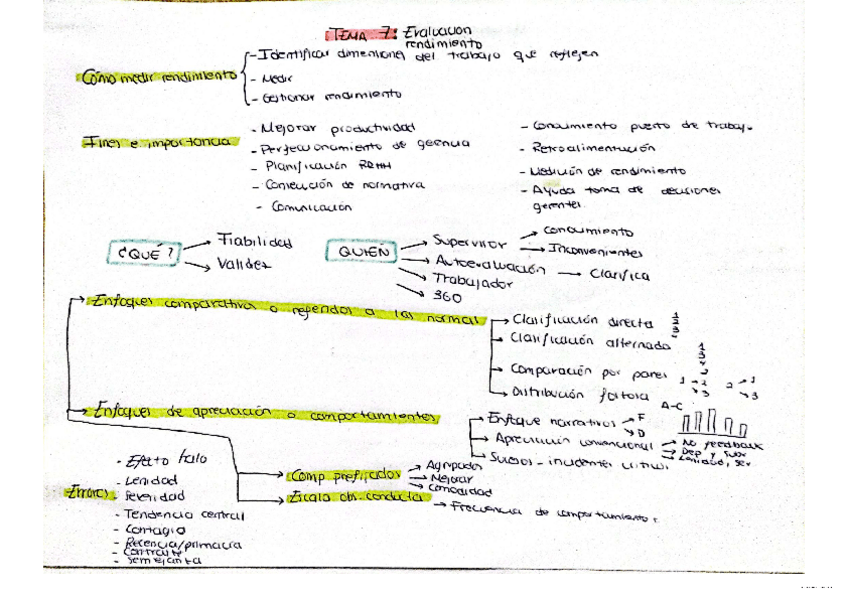 TEMA 7: Evaluación
rendimiento
Cómo medir rendimiento
- Identificar dimensiones del trabajo que reflejen
- Medir
- Gestionar rendimiento
Fines e importancia
- Mejorar productividad
- Perfeccionamiento de gerencia
- Planificación RRHH
- Consecución de normativa
- Comunicación
- Conocimiento puesto de trabajo
- Retroalimentación
- Medición de rendimiento
- Ayuda toma de decisiones
gerentes
¿QUÉ?
Fiabilidad
Validez
QUIÉN
Supervisor
conocimiento
Inconvenientes
Autoevaluación
Trabajador
360
Enfoques comparativos o referidos a las normas
Clasificación directa
1
2
3
Clasificación alternada
Comparación por pares
1 2
3
2 1
3
Distribución forzosa
A-C
Enfoques de apreciación o comportamientos
Enfoque narrativos
F
D
Apreciación convencional
No feedback
Dep y Subr
Sucesos - incidentes críticos
Comp prefijados
Agrupados
Mejorar
Comodidad
Escala obs. conducta
Frecuencia de comportamientos
Errores
- Efecto halo
- Lenidad
- Severidad
- Tendencia central
- Contagio
- Recencia/primacía
- Contraste
- Semejanza